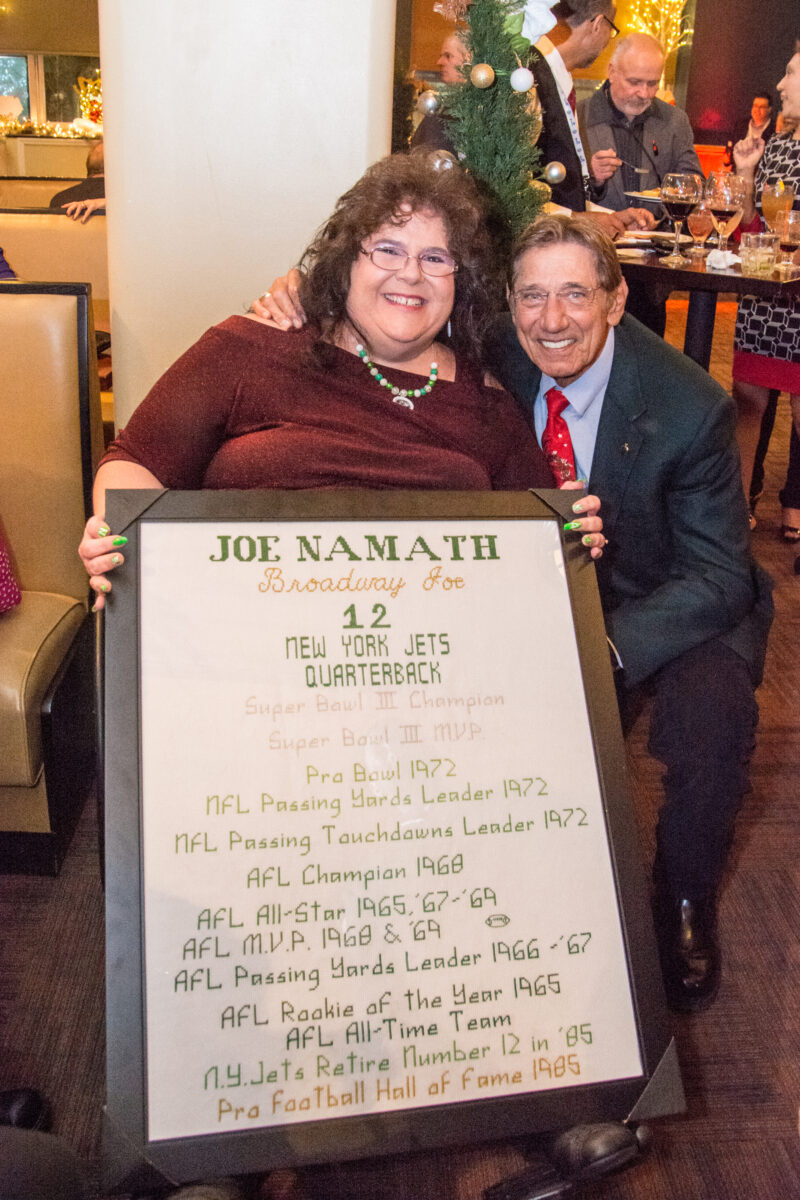 JOE NAMATH
Broadway Joe
12
NEW YORK JETS
QUARTERBACK
Super Bowl III Champion
Super Bowl III M.V.P.
Pro Bowl 1972
NFL Passing Yards Leader 1972
NFL Passing Touchdowns Leader 1972
AFL Champion 1968
AFL All-Star 1965,'67-'69
AFL M.V.P. 1968 & '69
AFL Passing Yards Leader 1966-'67
AFL Rookie of the Year 1965
AFL All-Time Team
N.Y.Jets Retire Number 12 in '85
Pro Football Hall of Fame 1985